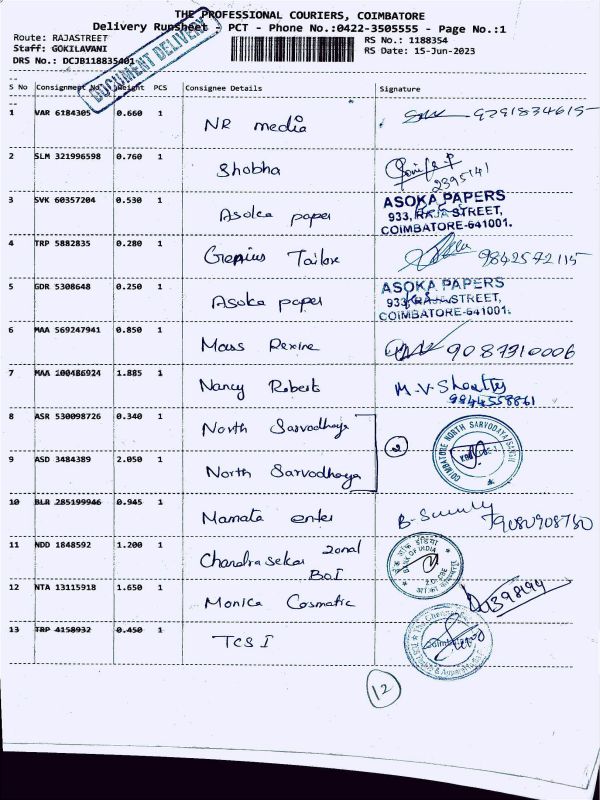 THE PROFESSIONAL COURIERS, COIMBATORE
Delivery Runsheet - PCT - Phone No.:0422-3505555 - Page No.:1
Route: RAJASTREET
RS No.: 1188354
Staff: GOKILAVANI
RS Date: 15-Jun-2023
DRS No.: DCJB118835401
DOCUMENT DELIVERY
S No Consignment No Weight PCS Consignee Details Signature
1 VAR 6184305 0.660 1 NR media 9291834615
2 SLM 321996598 0.760 1 Shobha 2395141
3 SVK 60357204 0.530 1 Asoka paper ASOKA PAPERS
933, RAJA STREET,
COIMBATORE-641001.
4 TRP 5882835 0.280 1 Genius Tailor 9842572115
5 GDR 5308648 0.250 1 Asoka paper ASOKA PAPERS
933, RAJA STREET,
COIMBATORE-641001.
6 MAA 569247941 0.850 1 Mass Rexine 9087310006
7 MAA 100486924 1.885 1 Nancy Robert M.V. Shetty
9944558861
8 ASR 530098726 0.340 1 North Sarvodhaya 2 COIMBATORE NORTH SARVODAYA SANGH
9 ASD 3484389 2.050 1 North Sarvodhaya
10 BLR 285199946 0.945 1 Mamata enter 79080908760
11 NDD 1848592 1.200 1 Chandra sekar zonal
BOI BANK OF INDIA
12 NTA 13115918 1.650 1 Monica Cosmatic
13 TRP 4158932 0.450 1 TCS I
12